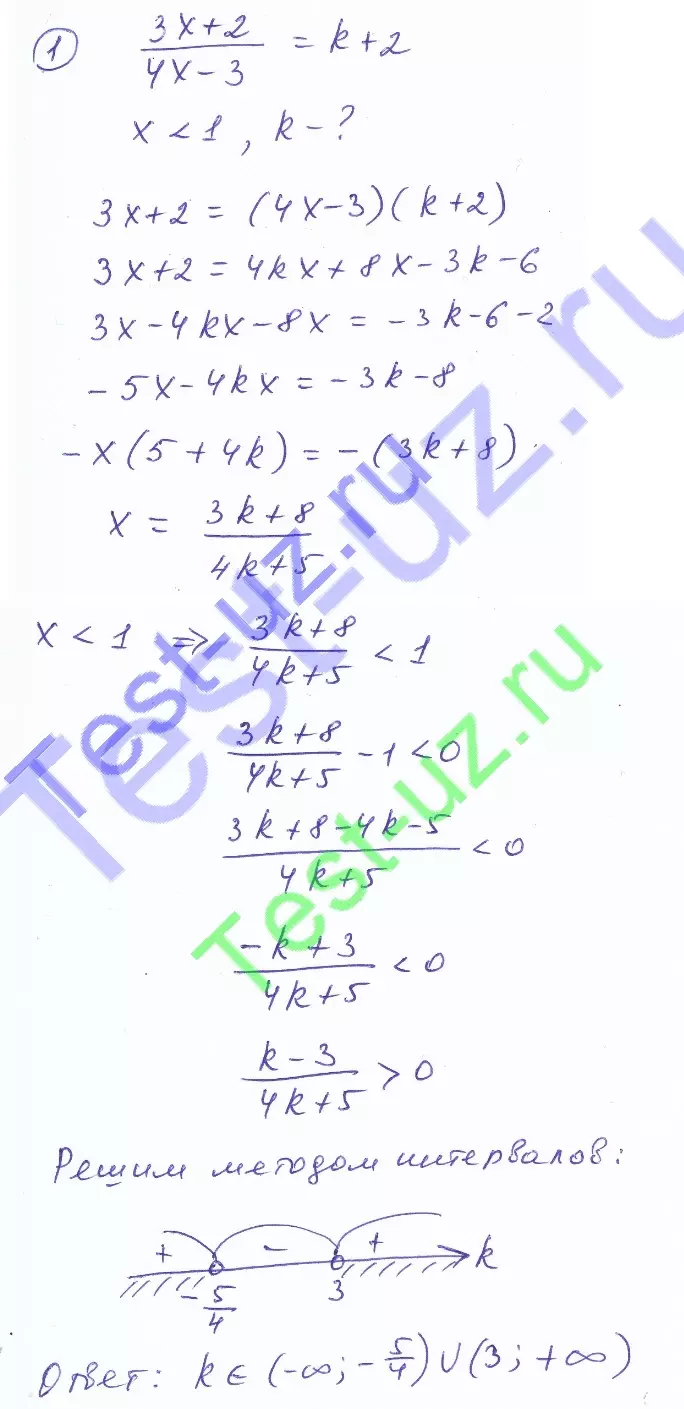 1 (3x+2)/(4x-3) = k+2
x < 1, k - ?
3x+2 = (4x-3)(k+2)
3x+2 = 4kx+8x-3k-6
3x-4kx-8x = -3k-6-2
-5x-4kx = -3k-8
-x(5+4k) = -(3k+8)
x = (3k+8)/(4k+5)
x < 1 => (3k+8)/(4k+5) < 1
(3k+8)/(4k+5) - 1 < 0
(3k+8-4k-5)/(4k+5) < 0
(-k+3)/(4k+5) < 0
(k-3)/(4k+5) > 0
Решим методом интервалов:
+ - + k
-5/4 3
Ответ: k ∈ (-∞; -5/4) ∪ (3; +∞)
Test-uz.ru
Test-uz.ru
Test-uz.ru